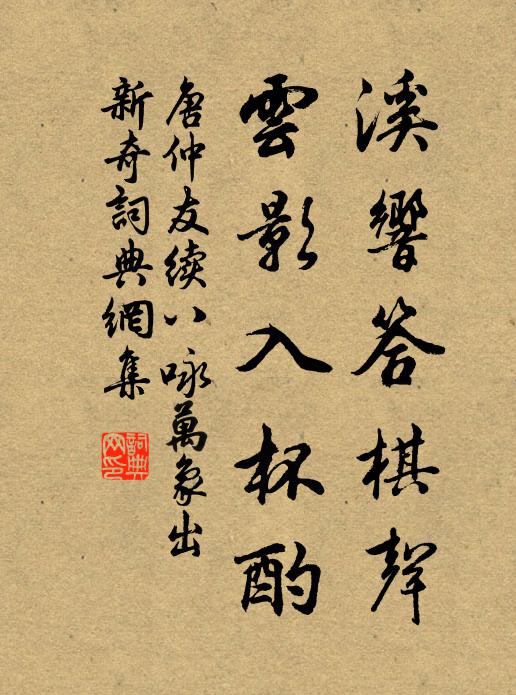 溪響答棋聲
雲影入杯酌
唐仲友續八咏萬象出
新奇詞典網集
詞典网印